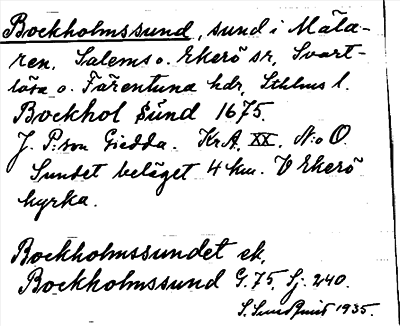 Bockholmssund, sund i Mäla-
ren, Salems o. Ekerö sr, Svart-
lösa o. Färentuna hdr, Sthlms l.
Bockhol Sund 1675.
J. P:son Giedda. Kr.A. XX. N:o O.
Sundet beläget 4 km. V Ekerö
kyrka.
Bockholmssundet ek,
Bockholmssund G. 75, Sj. 240.
S. Sundquist 1935.